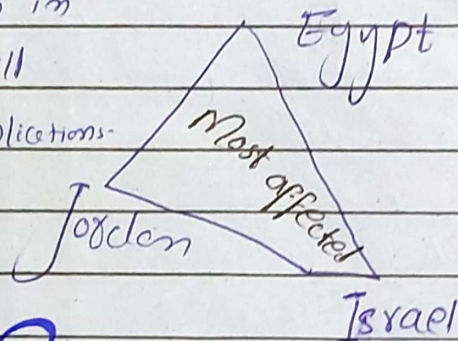 in
Egypt
ll
plications-
Most affected
Jordan
Israel